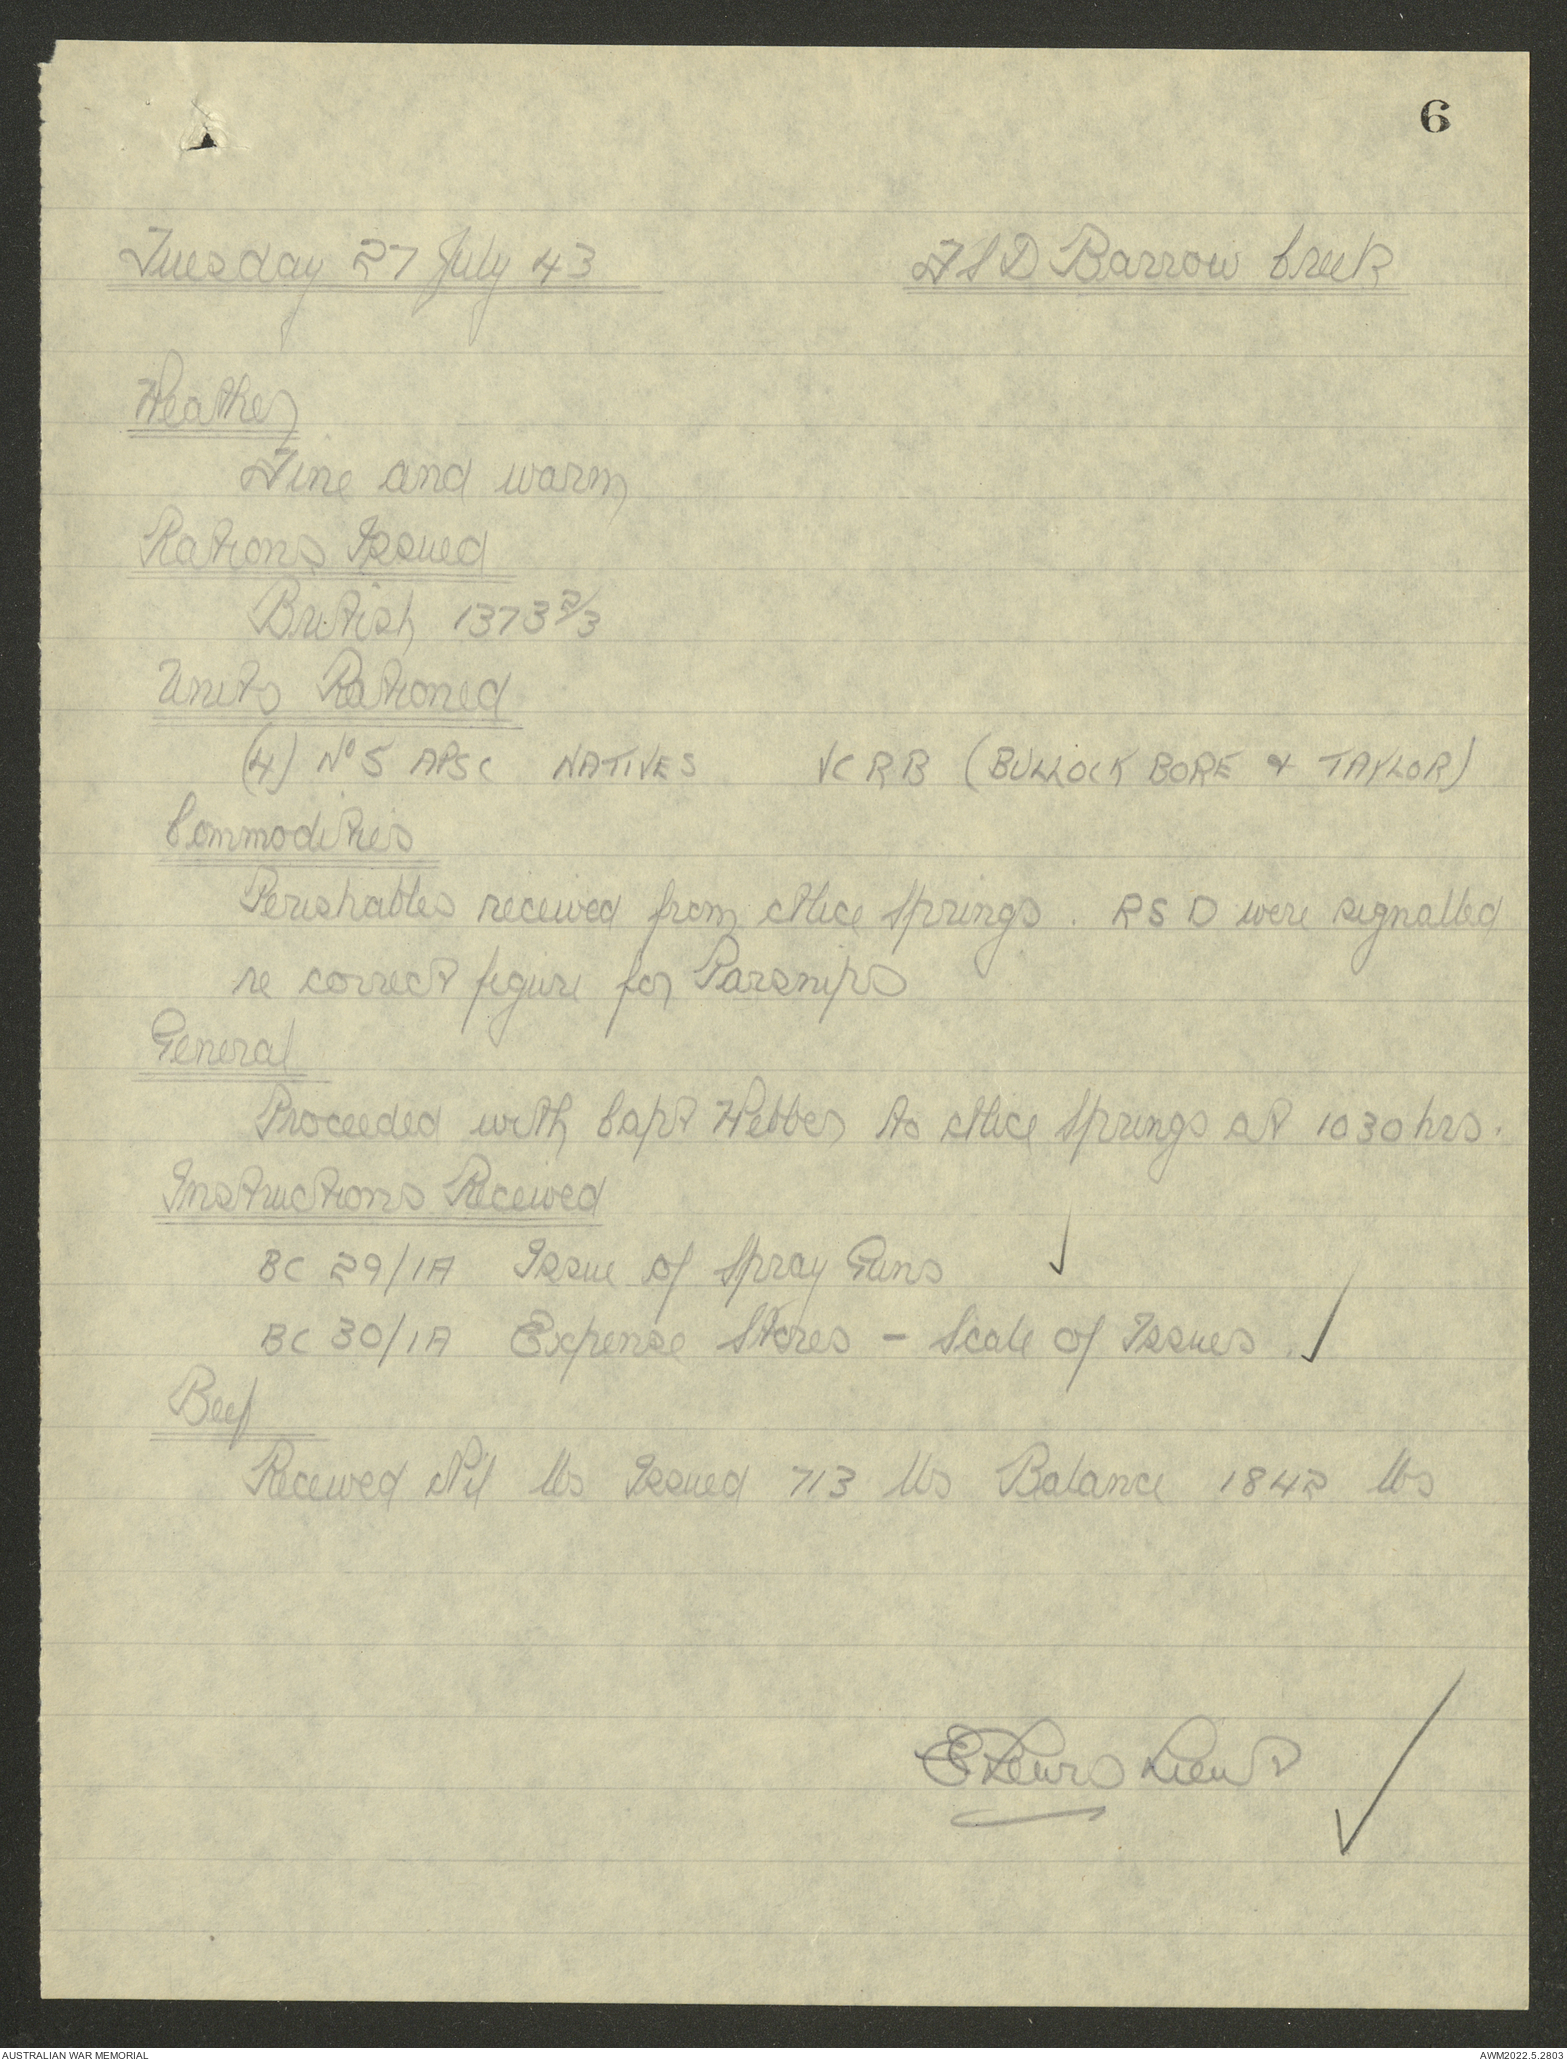 6
Tuesday 27 July 43 FSD Barrow Creek
Weather
Fine and warm
Rations Issued
British 1373 2/3
Units Rationed
(4) No 5 APSC NATIVES VCRB (BULLOCK BORE & TAYLOR)
Commodities
Perishables received from Alice Springs. RSD were signalled
re correct figure for Parsnips
General
Proceeded with Capt Webber to Alice Springs at 1030 hrs.
Instructions Received
BC 29/1A Issue of Spray Guns ✓
BC 30/1A Expense Stores - Scale of Issues. ✓
Beef
Received Nil lbs Issued 713 lbs Balance 1842 lbs
E Lewis Lieut ✓
AUSTRALIAN WAR MEMORIAL AWM2022.5.2803